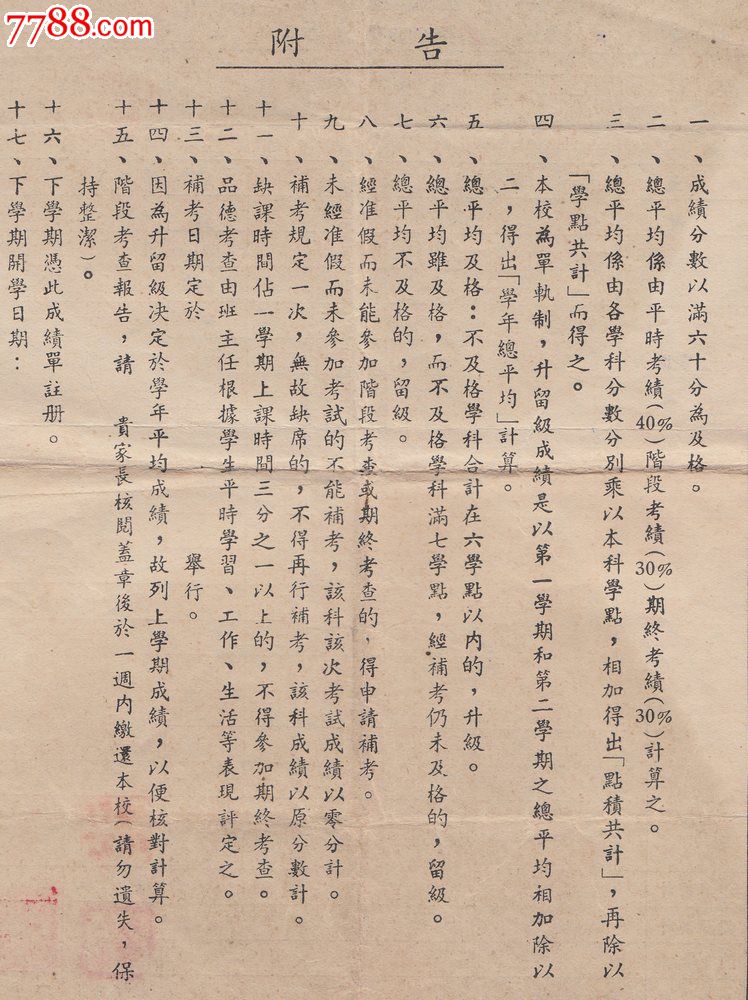 7788.com
附告
一、成績分數以滿六十分為及格。
二、總平均係由平時考績(40%)階段考績(30%)期終考績(30%)計算之。
三、總平均係由各學科分數分別乘以本科學點，相加得出「點積共計」，再除以
「學點共計」而得之。
四、本校為單軌制，升留級成績是以第一學期和第二學期之總平均相加除以
二，得出「學年總平均」計算。
五、總平均及格：不及格學科合計在六學點以內的，升級。
六、總平均雖及格，而不及格學科滿七學點，經補考仍未及格的，留級。
七、總平均不及格的，留級。
八、經准假而未能參加階段考查或期終考查的，得申請補考。
九、未經准假而未參加考試的不能補考，該科該次考試成績以零分計。
十、補考規定一次，無故缺席的，不得再行補考，該科成績以原分數計。
十一、缺課時間佔一學期上課時間三分之一以上的，不得參加期終考查。
十二、品德考查由班主任根據學生平時學習、工作、生活等表現評定之。
十三、補考日期定於 舉行。
十四、因為升留級決定於學年平均成績，故列上學期成績，以便核對計算。
十五、階段考查報告，請 貴家長核閱蓋章後於一週內繳還本校(請勿遺失，保
持整潔)。
十六、下學期憑此成績單註册。
十七、下學期開學日期：